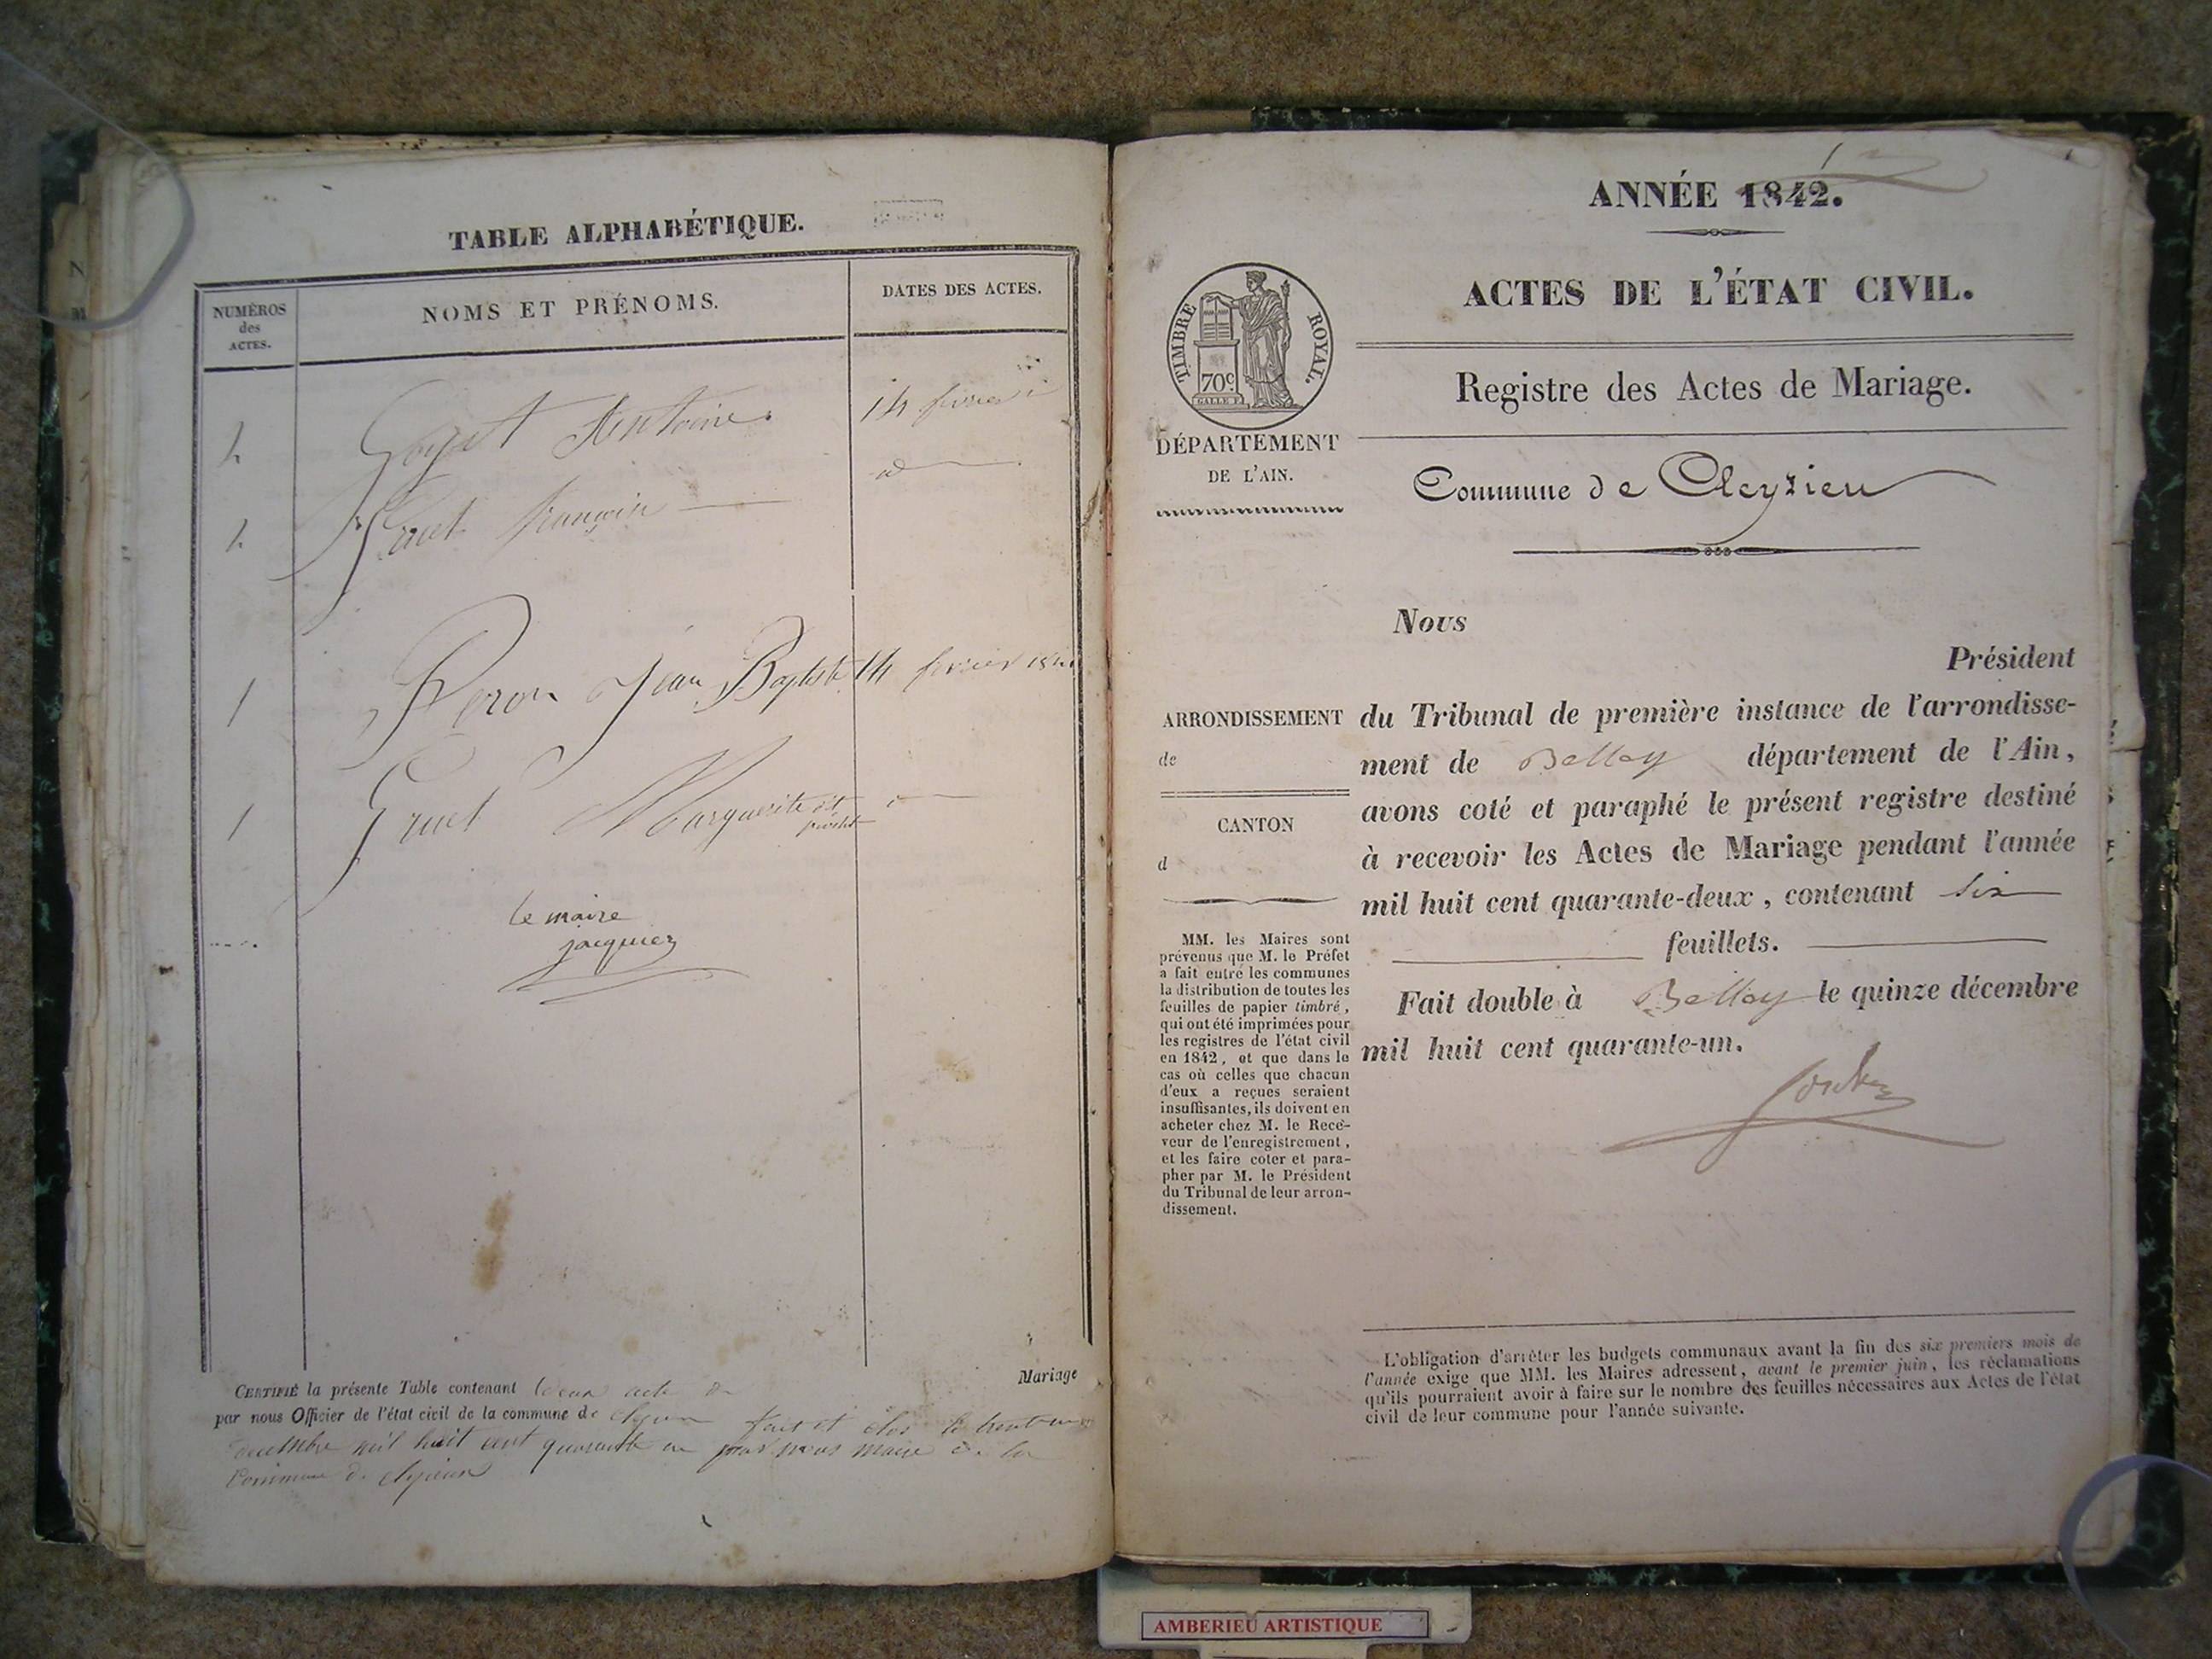 TABLE ALPHABÉTIQUE.
NUMÉROS
des
ACTES.
NOMS ET PRÉNOMS.
DATES DES ACTES.
2 Goyet Antoine. 14 février
2 François id
1 Peron Jean Baptiste 14 février
1 Gruet Marguerite dit
le maire
jacquier
Mariage
CERTIFIÉ la présente Table contenant deux acte de
par nous Officier de l'état civil de la commune de fait et clos le trente un
décembre mil huit cent quarante un par nous maire de la
Commune de
ANNÉE 1842.
1
ACTES DE L'ÉTAT CIVIL.
TIMBRE ROYAL.
70c
Registre des Actes de Mariage.
DÉPARTEMENT
DE L'AIN.
Commune de Cleyzieu
Nous
Président
ARRONDISSEMENT
de
CANTON
d
du Tribunal de première instance de l'arrondisse-
ment de Belley département de l'Ain,
avons coté et paraphé le présent registre destiné
à recevoir les Actes de Mariage pendant l'année
mil huit cent quarante-deux, contenant six
feuillets.
Fait double à Belley le quinze décembre
mil huit cent quarante-un.
MM. les Maires sont
prévenus que M. le Préfet
a fait entre les communes
la distribution de toutes les
feuilles de papier timbré,
qui ont été imprimées pour
les registres de l'état civil
en 1842, et que dans le
cas où celles que chacun
d'eux a reçues seraient
insuffisantes, ils doivent en
acheter chez M. le Rece-
veur de l'enregistrement,
et les faire coter et para-
pher par M. le Président
du Tribunal de leur arron-
dissement.
L'obligation d'arrêter les budgets communaux avant la fin des six premiers mois de
l'année exige que MM. les Maires adressent, avant le premier juin, les réclamations
qu'ils pourraient avoir à faire sur le nombre des feuilles nécessaires aux Actes de l'état
civil de leur commune pour l'année suivante.
AMBERIEU ARTISTIQUE